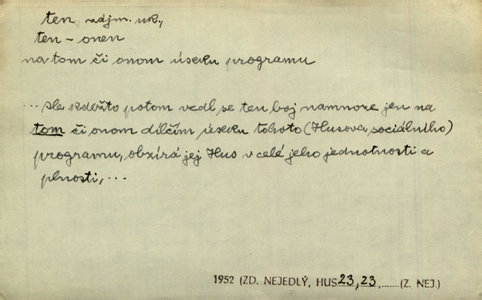 ten, zájm. uk.,
ten – onen
na tom či onom úseku programu
... ale kdežto potom vedl se ten boj namnoze jen na
tom či onom dílčím úseku tohoto (Husova, sociálního)
programu, obzírá jej Hus v celé jeho jednotnosti a
plnosti, ...
1952 (ZD. NEJEDLÝ, HUS 23, 23, ....... (Z. NEJ.)